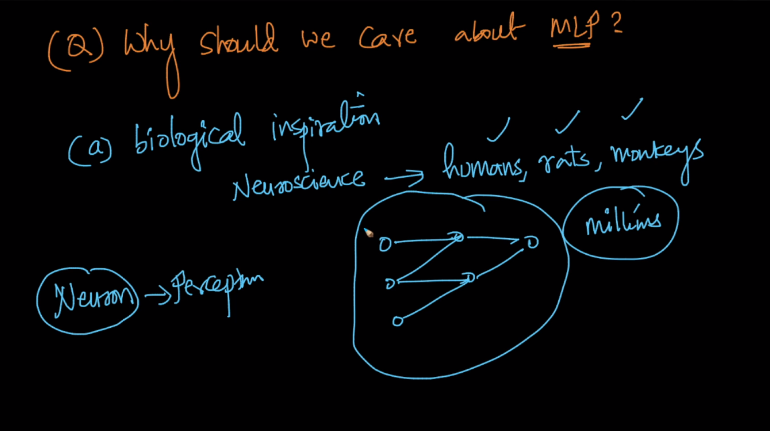 (Q) Why should we care about MLP?
(a) biological inspiration
Neuroscience → humans, rats, monkeys
millions
Neuron → Perceptron